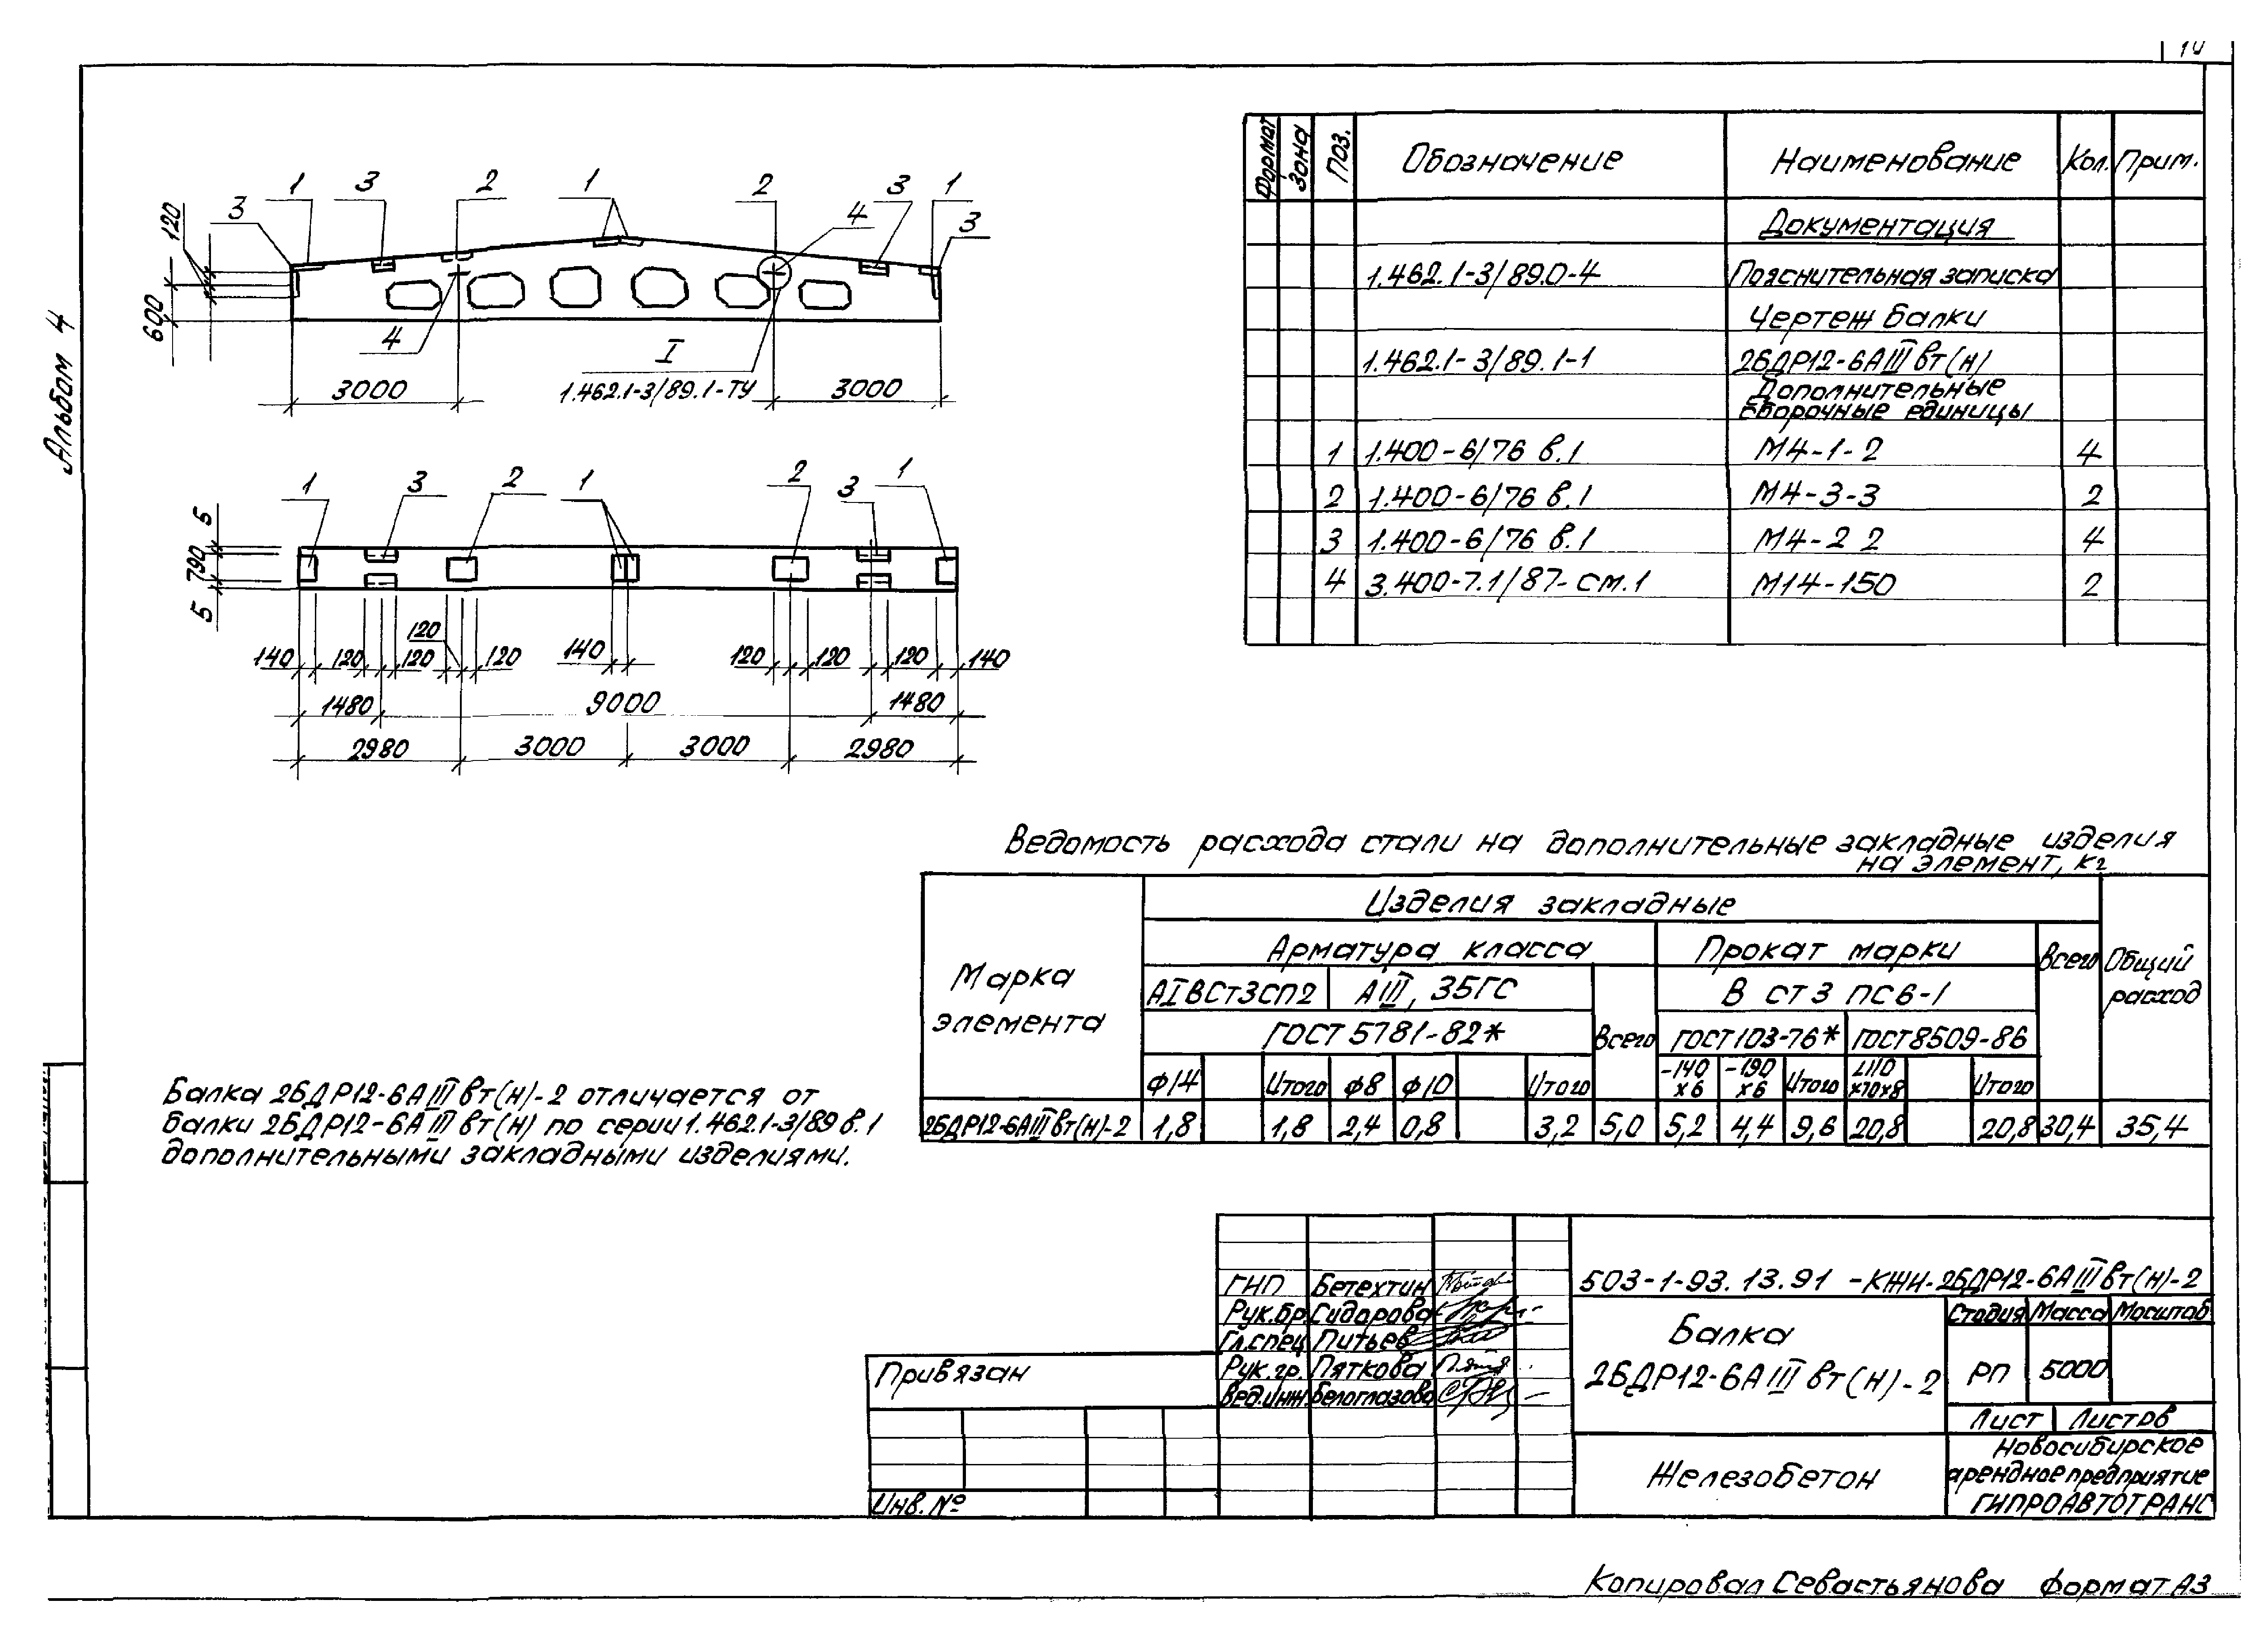 Альбом 4
1 3 2 1 2 3 1
3 4 3
120
3 3
600
4 I
3000 1.462.1-3/89.1-ТУ 3000
1 3 2 1 2 3 1
5
790
5
120
140 120 120 120 140 120 120 120 140
1480 9000 1480
2980 3000 3000 2980
Формат Зона Поз. Обозначение Наименование Кол. Прим.
Документация
1.462.1-3/89.0-4 Пояснительная записка
Чертеж балки
1.462.1-3/89.1-1 2БДР12-6АIIIвт(н)
Дополнительные
сборочные единицы
1 1.400-6/76 в.1 М4-1-2 4
2 1.400-6/76 в.1 М4-3-3 2
3 1.400-6/76 в.1 М4-2 2 4
4 3.400-7.1/87- см.1 М14-150 2
Ведомость расхода стали на дополнительные закладные изделия
на элемент, кг
Марка
элемента
Изделия закладные
Общий
расход
Арматура класса Прокат марки Всего
АIВСт3СП2 АIII, 35ГС Всего В ст3 пс6-1
ГОСТ 5781-82* ГОСТ103-76* ГОСТ8509-86
ф14 Итого ф8 ф10 Итого -140 х6 -190 х6 Итого L110 х70х8 Итого
2БДР12-6АIIIвт(н)-2 1,8 1,8 2,4 0,8 3,2 5,0 5,2 4,4 9,6 20,8 20,8 30,4 35,4
Балка 2БДР12-6АIIIвт(н)-2 отличается от
балки 2БДР12-6АIIIвт(н) по серии 1.462.1-3/89 в.1
дополнительными закладными изделиями.
ГИП Бетехтин
Рук.бр. Сидорова
Гл.спец Питьев
Рук.гр. Пяткова
Вед.инж. Белоглазова
503-1-93.13.91 -КЖИ-2БДР12-6АIIIвт(н)-2
Балка
2БДР12-6АIIIвт(н)-2
Стадия Масса Масштаб
РП 5000
Лист Листов
Железобетон
Новосибирское
арендное предприятие
ГИПРОАВТОТРАНС
Привязан
Инв. №
Копировал Севастьянова формат А3